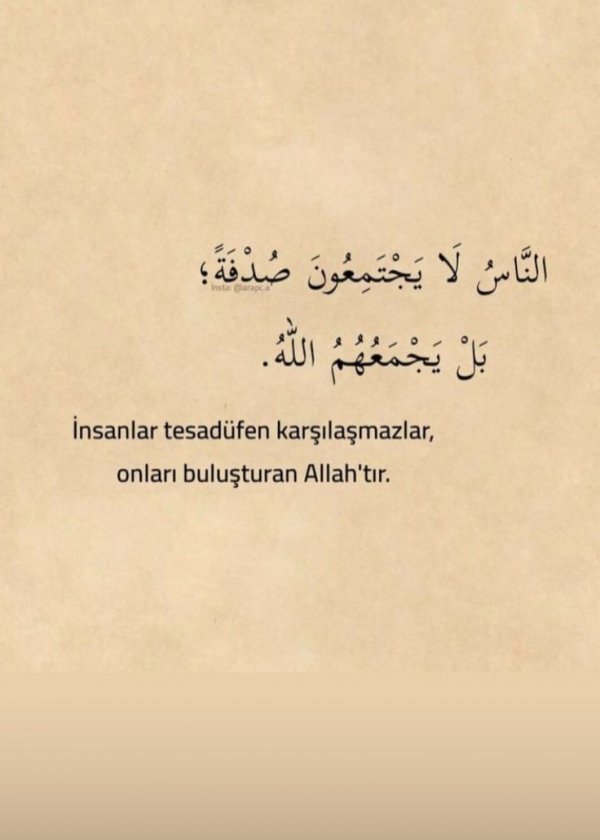 النَّاسُ لَا يَجْتَمِعُونَ صُدْفَةً؛
Insta: @arapc.a
بَلْ يَجْمَعُهُمُ اللّٰهُ.
İnsanlar tesadüfen karşılaşmazlar,
onları buluşturan Allah'tır.